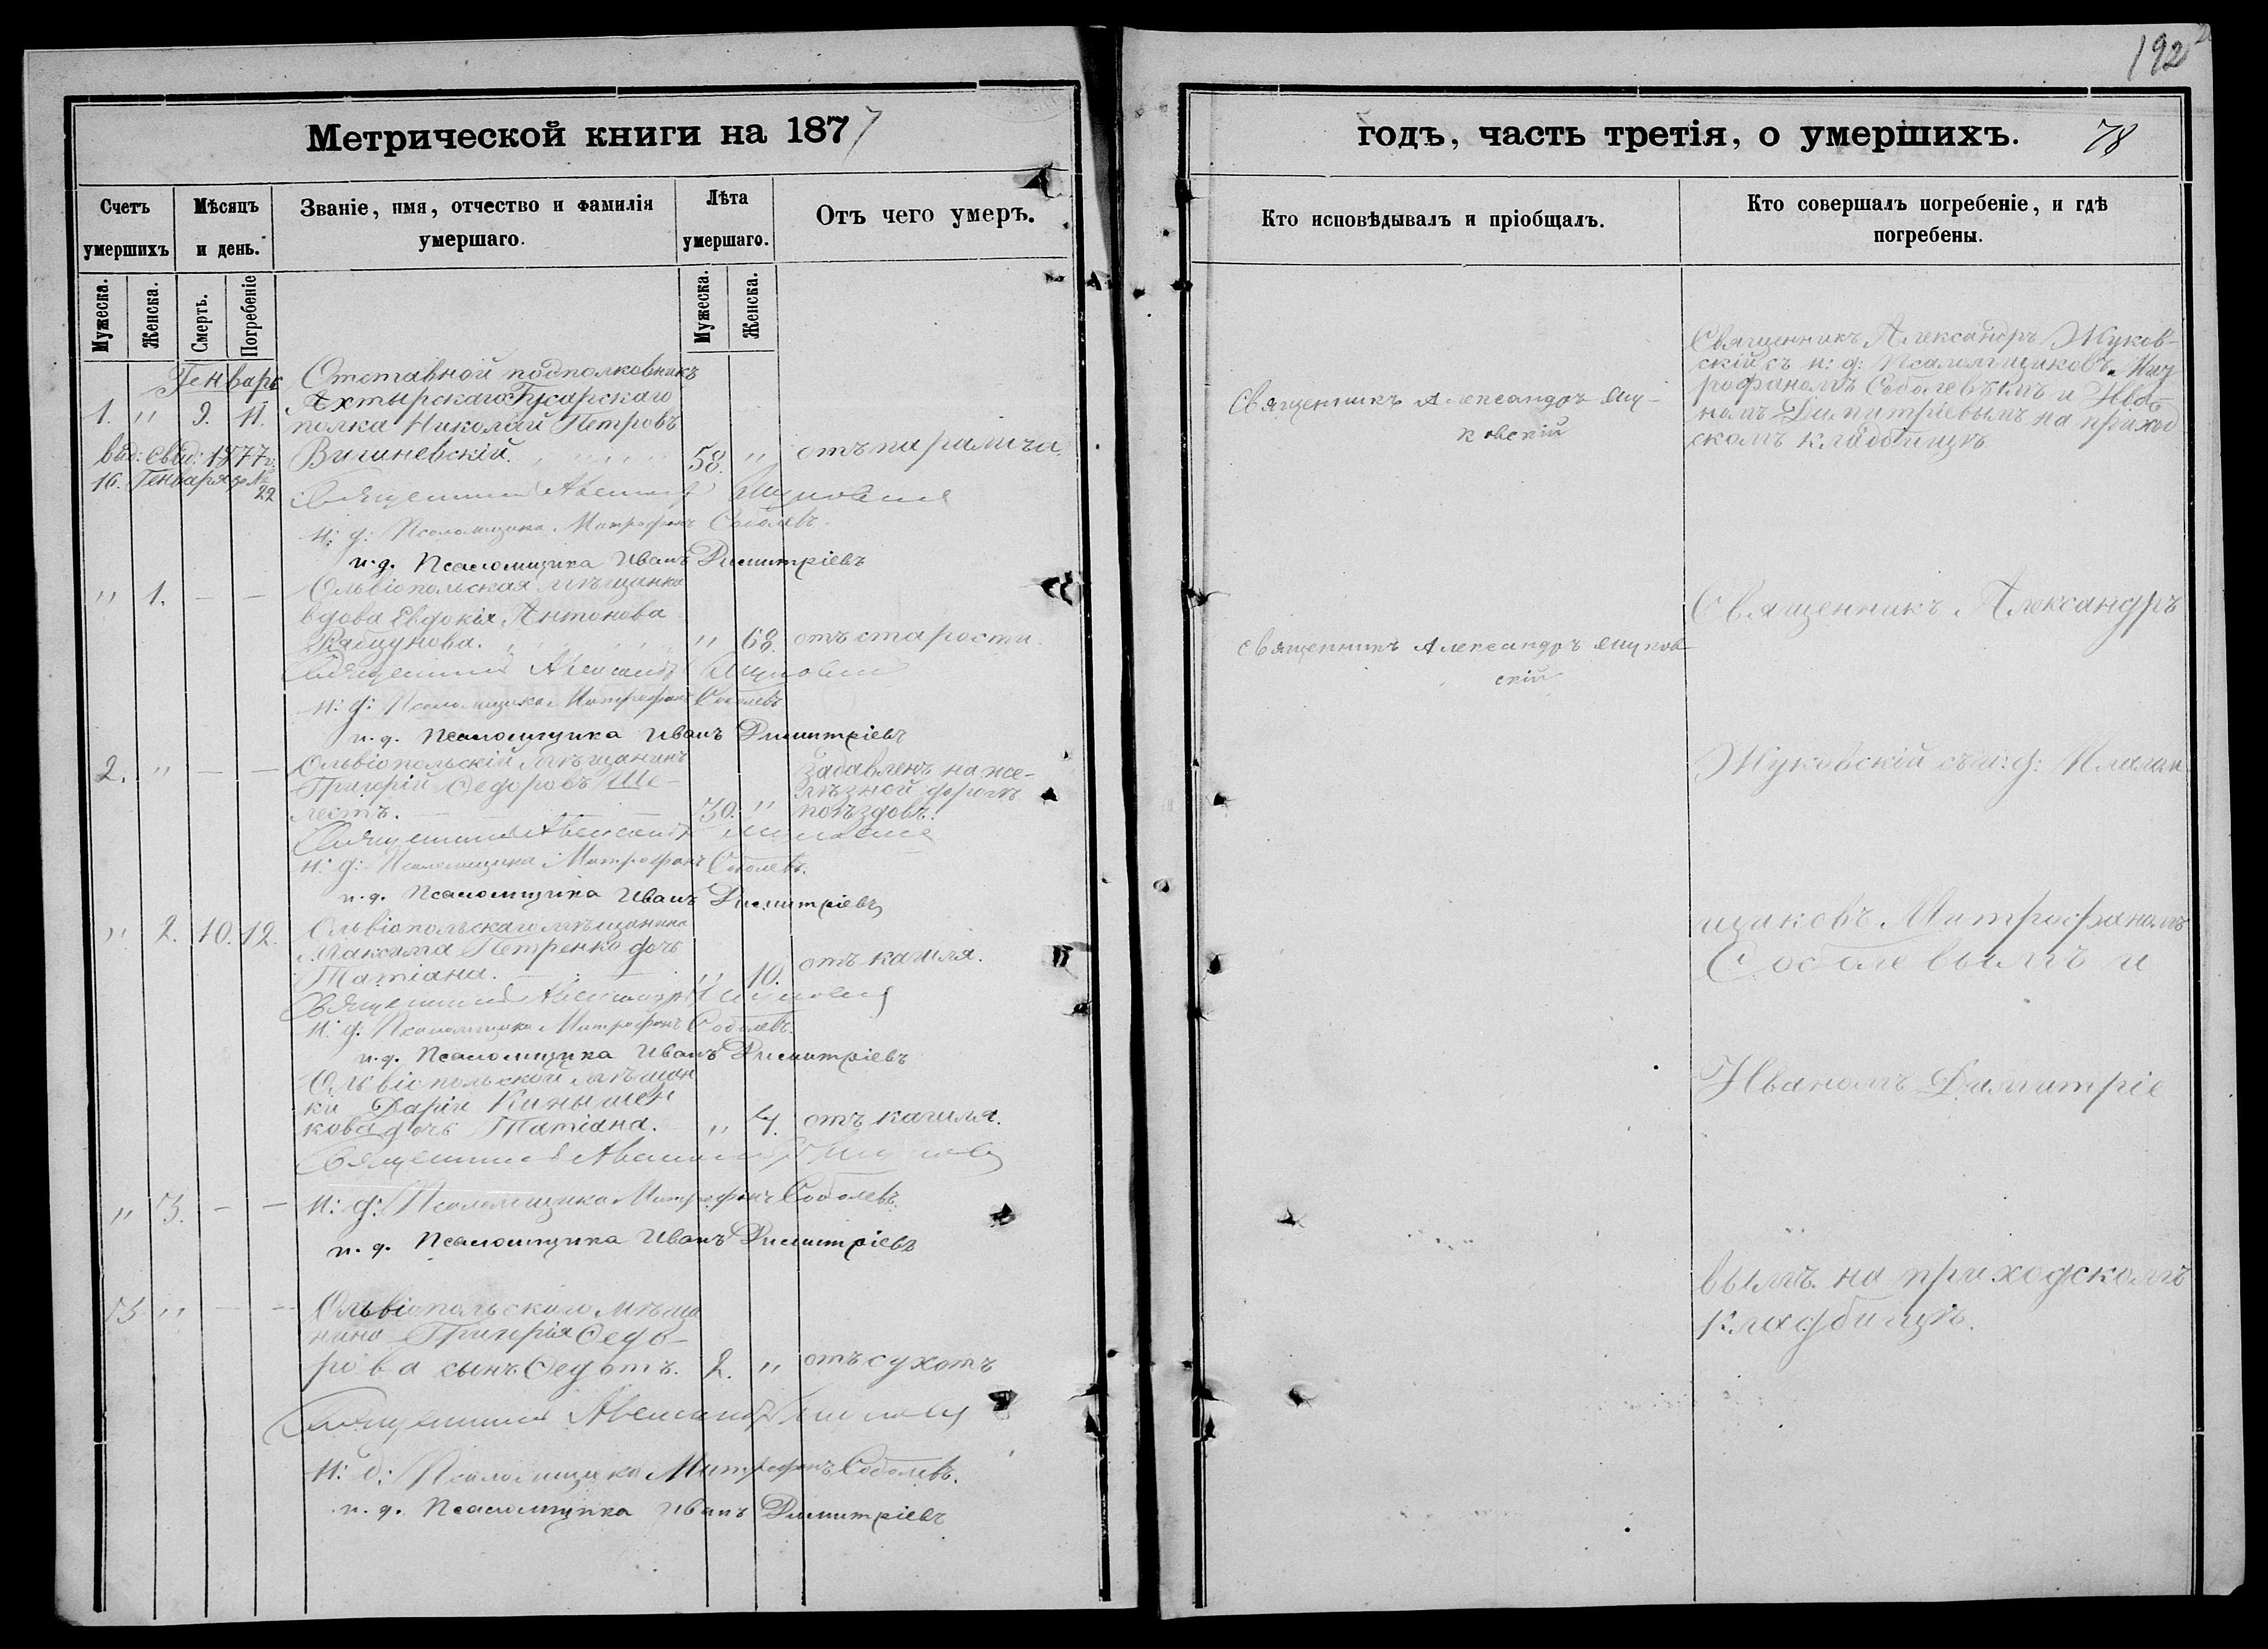 192
Метрической книги на 1877
годъ, часть третія, о умершихъ.
78
Счетъ умершихъ
Мѣсяцъ и день.
Званіе, имя, отчество и фамилія умершаго.
Лѣта умершаго.
Отъ чего умеръ.
Кто исповѣдывалъ и пріобщалъ.
Кто совершалъ погребеніе, и гдѣ погребены.
Мужеска.
Женска.
Смерть.
Погребеніе
Мужеска.
Женска.
Генварь
Отставной подполковникъ
1. " 9. 11. Ахтырскаго Гусарскаго
полка Николай Петровъ
Вишневскій. 58. " отъ паралича.
выд: свид: 1877 г:
16. Генваря за № 22
Священникъ Александръ Жуковскій
и: д: Псаломщика Митрофанъ Соболевъ.
и. д. Псаломщика Иванъ Димитріевъ
" 1. — — Ольвіопольская мѣщанка
вдова Евдокія Антонова
" 68. отъ старости.
Священникъ Александръ Жуковскій
и: д: Псаломщика Митрофанъ Соболевъ
и. д. Псаломщика Иванъ Димитріевъ
2. " — — Ольвіопольскій мѣщанинъ
Григорій Федоровъ Ше-
лестъ. 30. "
Задавленъ на же-
лѣзной дорогѣ
поѣздовъ.
Священникъ Александръ Жуковскій
и: д: Псаломщика Митрофанъ Соболевъ.
и. д. Псаломщика Иванъ Димитріевъ
" 2. 10. 12. Ольвіопольскаго мѣщанина
Максима Петренко дочь
Татіана. " 10. отъ кашля.
Священникъ Александръ Жуковскій
и: д: Псаломщика Митрофанъ Соболевъ.
и. д. Псаломщика Иванъ Димитріевъ
Ольвіопольской мѣщан
ки Даріи
дочь Татіана. " 4. отъ кашля.
Священникъ Александръ Жуковскій
" 3. — — и: д: Псаломщика Митрофанъ Соболевъ.
и. д. Псаломщика Иванъ Димитріевъ
3. " — — Ольвіопольскаго мѣща
нина Григорія Федо-
рова сынъ Федотъ. 2. " отъ сухотъ
Священникъ Александръ Жуковскій
и: д: Псаломщика Митрофанъ Соболевъ.
и. д. Псаломщика Иванъ Димитріевъ
Священникъ Александръ Жу-
ковскій
Священникъ Александръ Жуков
скій
Священникъ Александръ Жуков-
скій съ и: д: Псаломщиковъ Мит
рофаномъ Соболевымъ и Ива-
номъ Димитріевымъ на приход
скомъ кладбищѣ
Священникъ Александръ
Жуковскій съ и: д: Псалом
щиковъ Митрофаномъ
Соболевымъ и
Иваномъ Димитріе
вымъ на приходскомъ
кладбищѣ.